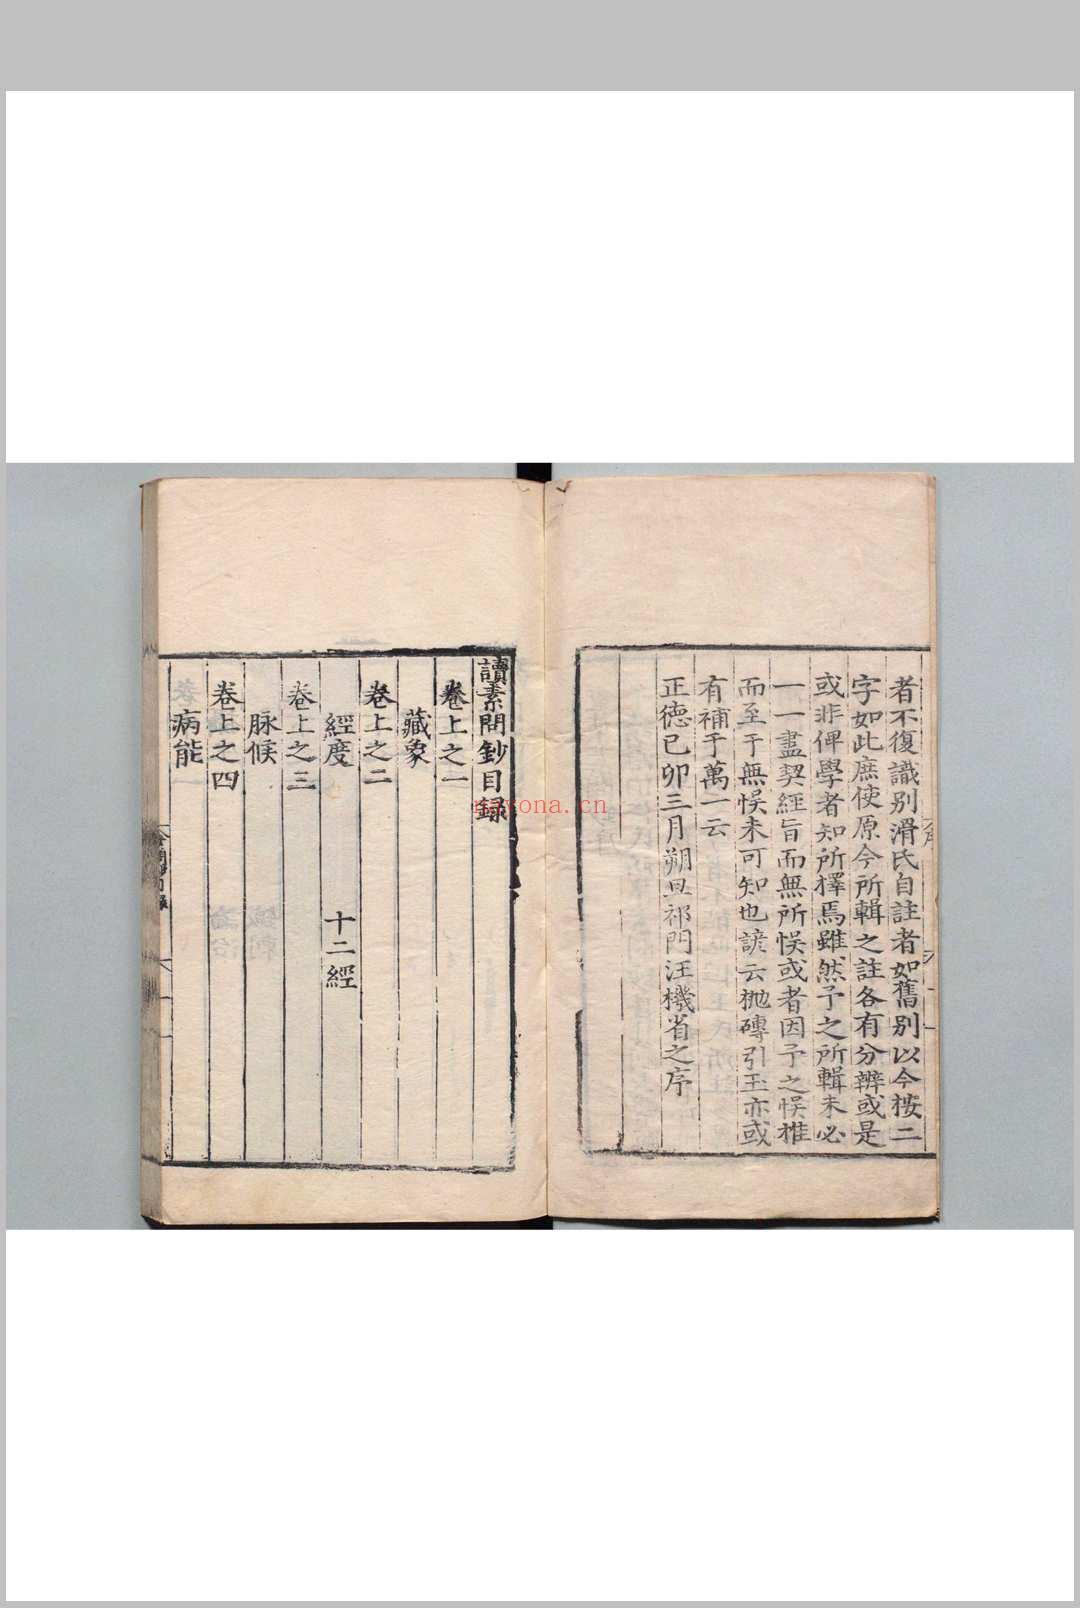 者不復識别滑氏自註者如舊别以今按二
字如此庶使原今所輯之註各有分辨或是
或非俾學者知所擇焉雖然予之所輯未必
一一盡契經旨而無所悞或者因予之悞推
而至于無悞未可知也諺云抛磚引玉亦或
有補于萬一云
正德己卯三月朔旦祁門汪機省之序
讀素問鈔目録
卷上之一
藏象
卷上之二
經度 十二經
卷上之三
脉候
卷上之四
病能
nayona.cn